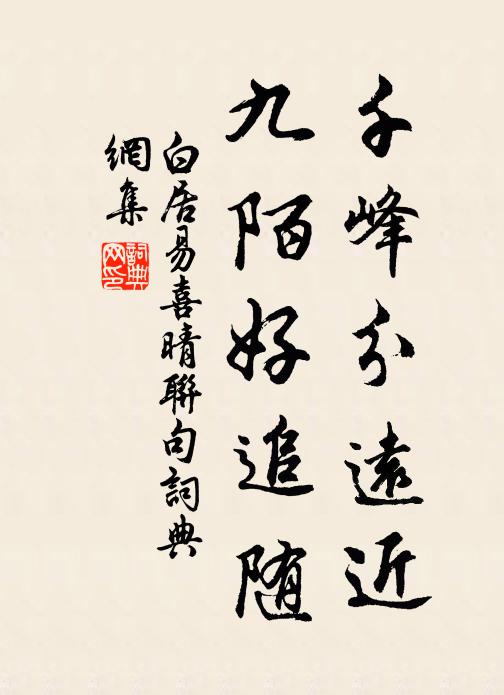 千峰分遠近
九陌好追随
白居易喜晴聯句詞典
網集
詞典
网印